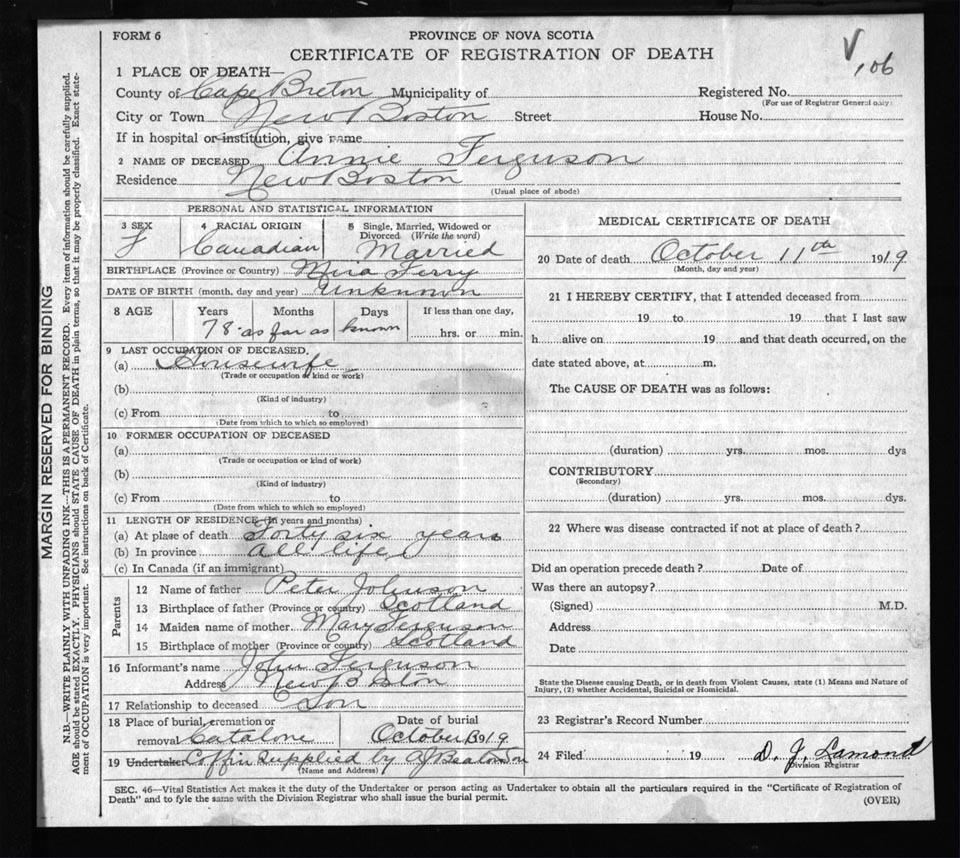 FORM 6
PROVINCE OF NOVA SCOTIA
CERTIFICATE OF REGISTRATION OF DEATH
V,06
1 PLACE OF DEATH—
County of Cape Breton Municipality of Registered No.
(For use of Registrar General only)
City or Town New Boston Street House No.
If in hospital or institution, give name
2 NAME OF DECEASED Annie Ferguson
Residence New Boston
(Usual place of abode)
PERSONAL AND STATISTICAL INFORMATION
3 SEX
F
4 RACIAL ORIGIN
Canadian
5 Single, Married, Widowed or
Divorced (Write the word)
Married
BIRTHPLACE (Province or Country) Mira Ferry
DATE OF BIRTH (month, day and year) Unknown
8 AGE Years Months Days If less than one day,
78 as far as known hrs. or min.
9 LAST OCCUPATION OF DECEASED,
(a) Housewife
(Trade or occupation of kind or work)
(b)
(Kind of industry)
(c) From to
(Date from which to which so employed)
10 FORMER OCCUPATION OF DECEASED
(a)
(Trade or occupation or kind of work)
(b)
(Kind of industry)
(c) From to
(Date from which to which so employed)
11 LENGTH OF RESIDENCE (In years and months)
(a) At place of death Forty six years
(b) In province all life
(c) In Canada (if an immigrant)
Parents
12 Name of father Peter Johnson
13 Birthplace of father (Province or country) Scotland
14 Maiden name of mother Mary Ferguson
15 Birthplace of mother (Province or country) Scotland
16 Informant's name John Ferguson
Address New Boston
17 Relationship to deceased Son
18 Place of burial, cremation or
removal Catalone
Date of burial
October 13 1919
19 Undertaker Coffin supplied by AJ Beaton
(Name and Address)
MEDICAL CERTIFICATE OF DEATH
20 Date of death October 11th 1919
(Month, day and year)
21 I HEREBY CERTIFY, that I attended deceased from
19 to 19 that I last saw
h alive on 19 and that death occurred, on the
date stated above, at m.
The CAUSE OF DEATH was as follows:
(duration) yrs. mos. dys
CONTRIBUTORY
(Secondary)
(duration) yrs. mos. dys.
22 Where was disease contracted if not at place of death?
Did an operation precede death? Date of
Was there an autopsy?
(Signed) M.D.
Address
Date
State the Disease causing Death, or in death from Violent Causes, state (1) Means and Nature of
Injury, (2) whether Accidental, Suicidal or Homicidal.
23 Registrar's Record Number
24 Filed 19 D. J. Lamond
Division Registrar
SEC. 46—Vital Statistics Act makes it the duty of the Undertaker or person acting as Undertaker to obtain all the particulars required in the "Certificate of Registration of
Death" and to fyle the same with the Division Registrar who shall issue the burial permit.
(OVER)
MARGIN RESERVED FOR BINDING
N.B.—WRITE PLAINLY WITH UNFADING INK—THIS IS A PERMANENT RECORD. Every item of information should be carefully supplied.
AGE should be stated EXACTLY. PHYSICIANS should STATE CAUSE OF DEATH in plain terms, so that it may be properly classified. Exact state-
ment of OCCUPATION is very important. See instructions on back of Certificate.